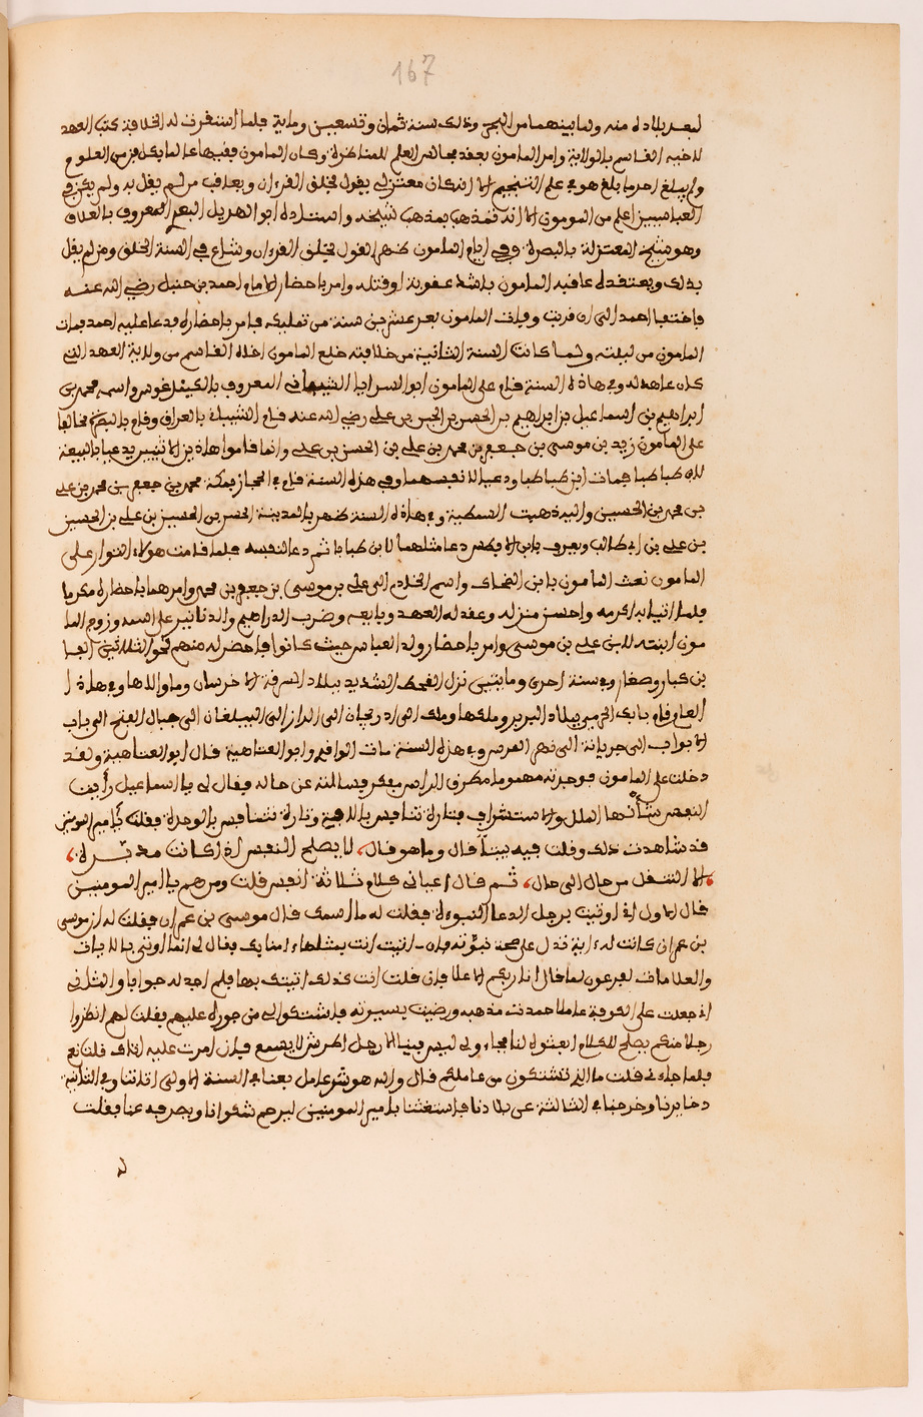 167
لبعد بلاده منه ولما بينهما من البحر وذلك سنة ثمان وتسعين وماية فلما استقرت له الخلافة كتب العهد
لاخيه القاسم بالولاية وامر المامون بعقد مجالس العلم للمناظرة وكان المامون فقيها عالما بكل فن من العلوم
ولم يبلغ احد ما بلغ هو في علم التنجيم الا انه كان معتزلي يقول بخلق القرءان ويعاقب من لم يقل به ولم يكن في
العباسيين اعلم من المومون الا انه تمذهب بمذهب شيخه واستاذه ابو الهذيل المعروف بالعلاف
وهو شيخ المعتزلة بالبصرة وفي ايام المامون ظهر القول بخلق القرءان وشاع في السنة الخلق ومن لم يقل
بذلك ويعتقده عاقبه المامون باشد عقوبة او قتله وامر باحضار الامام احمد بن حنبل رضي الله عنه
فاختفا احمد الى ان قربت وفات المامون بعد عشرين سنة من تمليكه فامر باحضاره فدعا عليه احمد فمات
المامون من ليلته ولما كانت السنة الثانية من خلافته خلع المامون اخاه القاسم من ولاية العهد الذي
كان عاهده له وفي هاذه السنة قام على المامون ابو السرايا الشيباني المعروف واسمه محمد بن
ابراهيم بن اسماعيل بن ابراهيم بن الحسن بن الحسن بن علي رضي الله عنه قام الشيبان بالعراق وقام بالبصرة مخالفا
على المامون زيد بن موسى بن جعفر بن محمد بن علي بن الحسن بن علي وانما قاموا هاذين الاثنين يدعيا بالبيعة
لابن طباطبا فمات ابن طباطبا ودعيا لانفسهما وفي هذه السنة قام في الحجاز بمكة محمد بن جعفر بن محمد بن علي
بن محمد بن الحسين واليه ذهبت السمطية وفي هاذه السنة ظهر بالمدينة الحسن بن الحسين بن علي بن الحسين
بن علي بن ابي طالب ويعرف بابن الافطس دعا مثلهما لابن طبابا ثم دعا لنفسه فلما قامت هولاء الثوار على
المامون بعث المامون بابن الضحاك واسم الخادم الى علي بن موسى بن جعفر بن محمد وامرهما باحضاره مكرما
فلما اتيا به اكرمه واحسن منزله وعقد له العهد وبايعه وضرب الدراهم والدنانير على اسمه وزوج الما
مون ابنته للابن علي بن موسى وامر باحضار ولد العباس حيث كانوا فاحضر له منهم نحو الثلاثين الفا
بين كبار وصغار وفي سنة احدى ومايتين نزل القحط الشديد ببلاد المشرقة الا خرسان وما والاها وفي هاذا ا
العام قام بابك الخرمي ببلاد البربر وملكها وملك الى ادربجان الى الراز الى البيلغان الى جبال الفتح الى باب
الابواب الى جريانة الى نهر العرس وفي هذه السنة مات الواقدي وابو العتاهية قال ابو العتاهية ولقد
دخلت على المامون فوجدته مهموما مطرق الراس مفكر فسالته عن حاله فقال لي يا اسماعيل رأيت
النفس شأنها الملل والاستشراف فتارة تنافس باللاهية وتارة تنافس بالوحدة فقلت يا امير المومنين
قد شاهدت ذلك وقلت فيه بيتاً قال وما هو قال، لا يصلح النفس اذ كانت مدبرة،
الا التنقل من حال الى حال، ثم قال اعياني كلام ثلاثة انفس قلت ومن هم يا امير المومنين
قال الاول اني اوتيت برجل ادعا النبوءة فقلت له ما اسمك قال موسى بن عمران فقلت له ان موسى
بن عمران كانت له ءاية تدل على صحة نبوّته فان اتيت انت بمثلها ءامنا بك فقال لي انما اوتي بالايات
والعلامات لفرعون لما قال انا ربكم الاعلا فان قلت انت كذلك اتيتك بها فلم اجد له جوابا والثاني
اني جعلت على الكوفة عاملا حمدت مذهبه ورضيت بسيرته فاشتكوا لي من جوره عليهم فقلت لهم انظروا
رجلا منكم يصلح للكلام ابعثوه لنا فجاءوني ليس فينا الا رجل اطرش لا يسمع فان امرت عليه اتاك قلت نعم
فلما جاءني قلت ما الذي تشتكون من عاملكم قال والله هو شر عامل بعنا في السنة الاولى اثاثنا وفي الثانية
دخايرنا وخرجنا في الثالثة عن بلادنا فاستغثنا بامير المومنين ليرحم شكوانا ويصرفه عنا فقلت
له